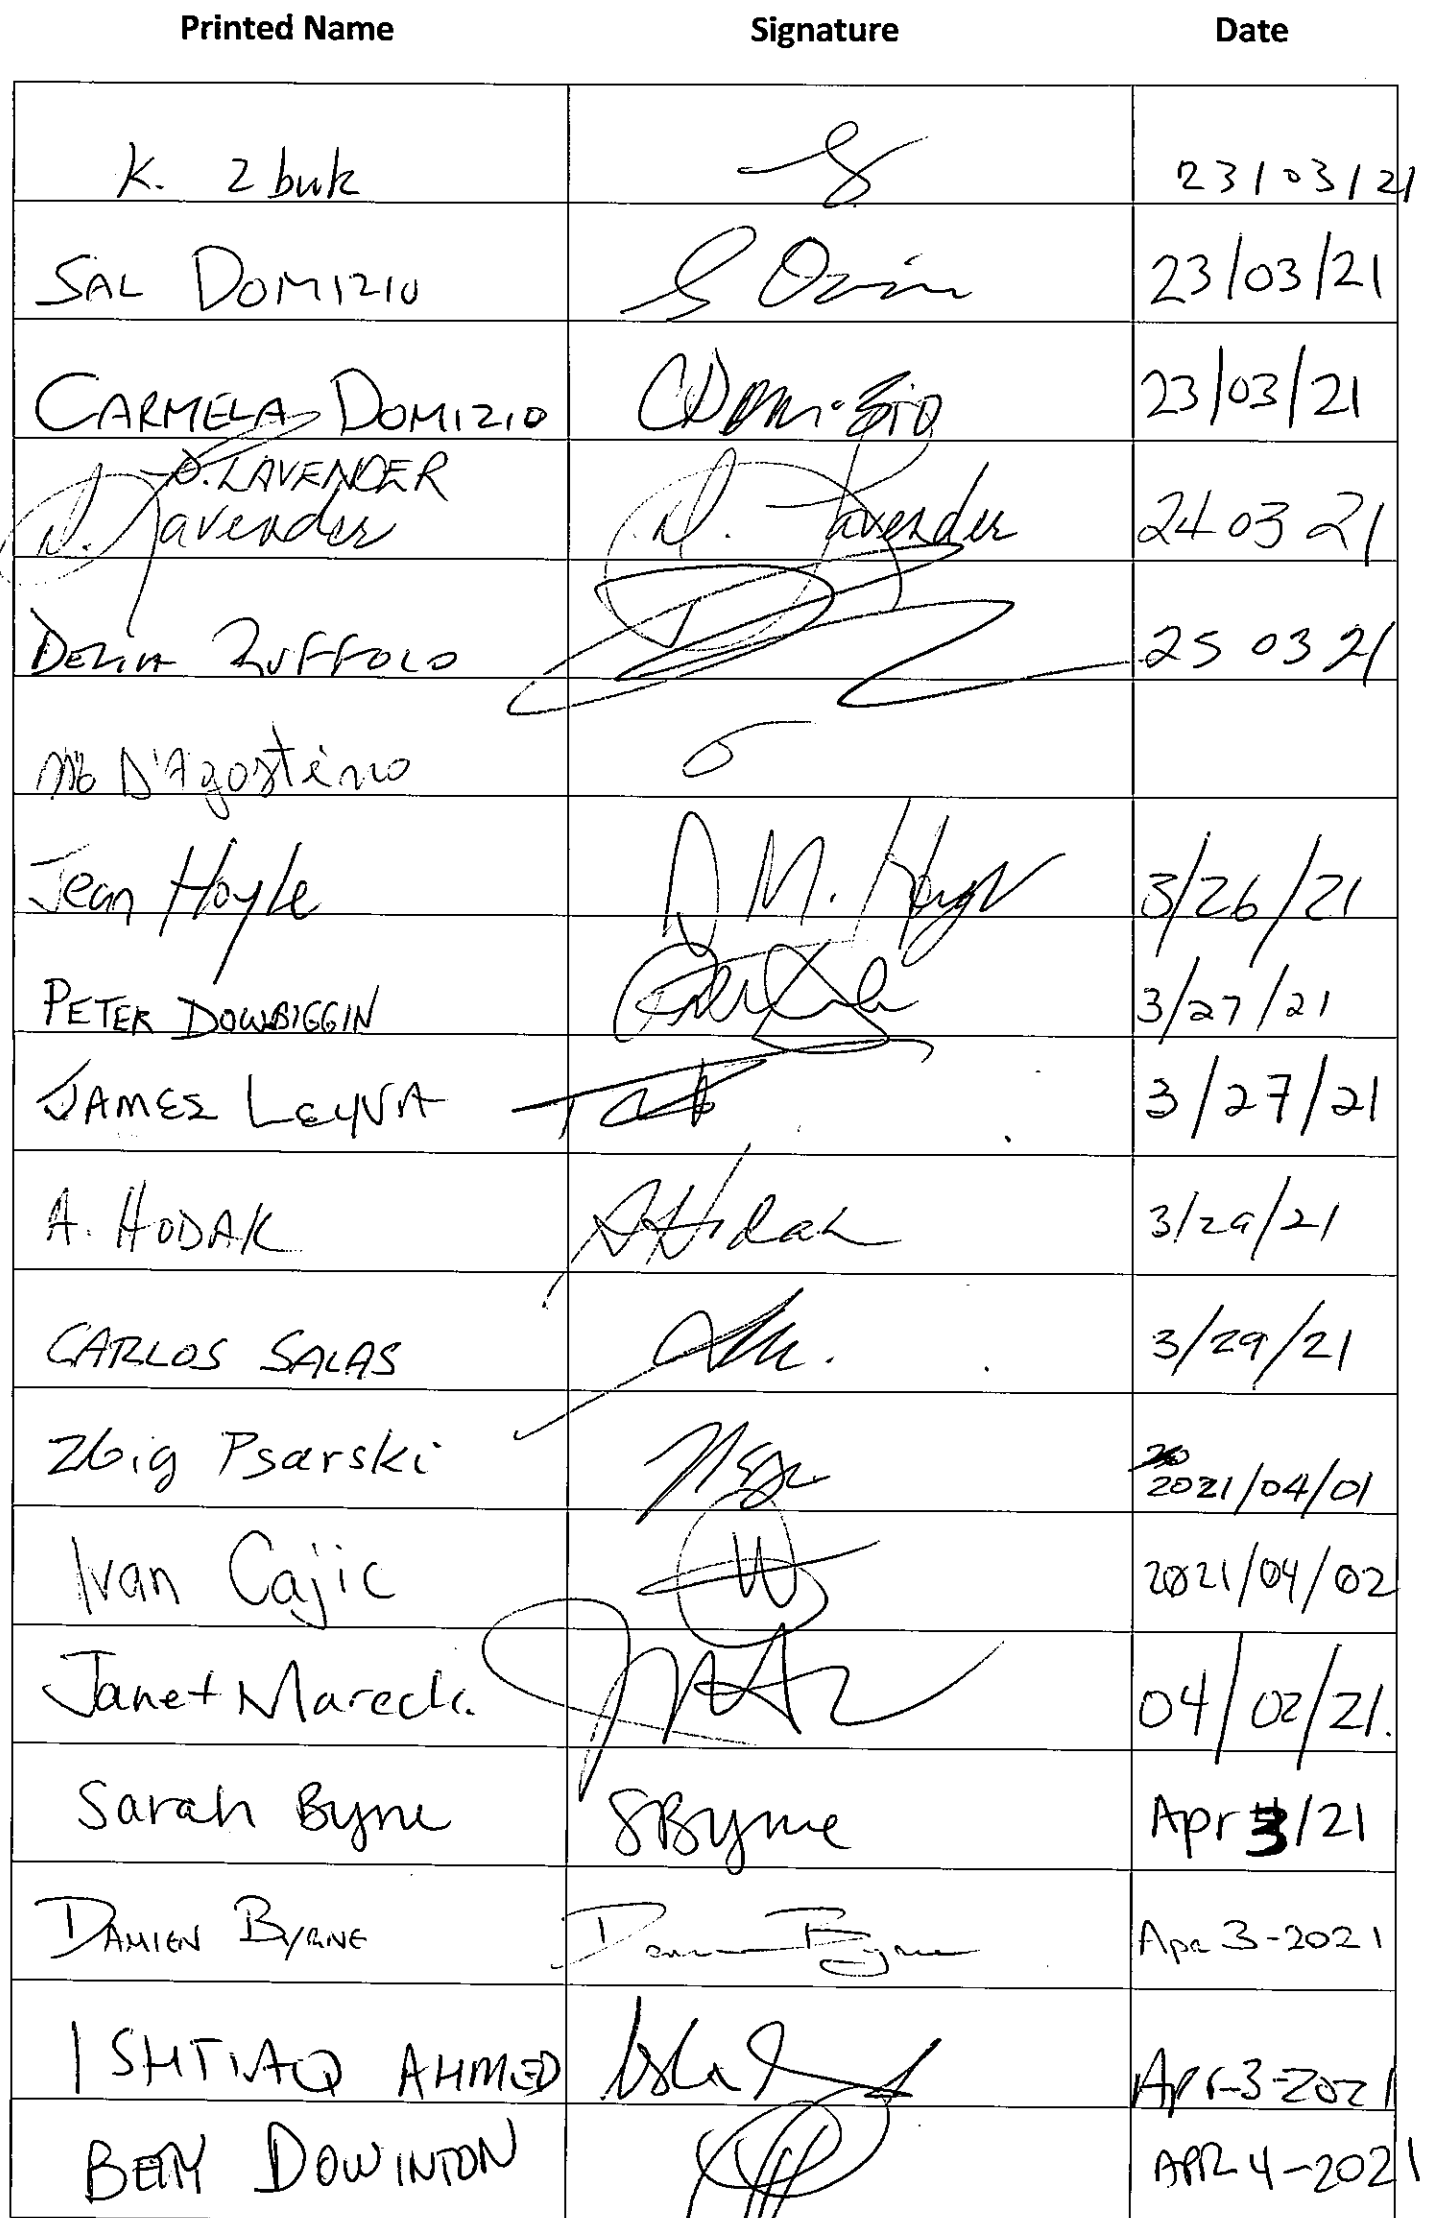 Printed Name Signature Date
K. Zbuk 23/03/21
SAL DOMIZIO 23/03/21
CARMELA DOMIZIO CDomizio 23/03/21
D. LAVENDER
D. Lavender D. Lavender 24 03 21
RUFFOLO 25 03 21
D'Agostino
Jean Hoyle J M. Hoyle 3/26/21
PETER DOWBIGGIN 3/27/21
JAMES LEYVA 3/27/21
A. HODAK A Hodak 3/29/21
CARLOS SALAS 3/29/21
Zbig Psarski 2021/04/01
Ivan Cajic 2021/04/02
Janet Marecki 04/02/21.
Sarah Byrne SByrne Apr 3/21
DAMIEN BYRNE Damien Byrne Apr 3-2021
ISHTIAQ AHMED Apr-3-2021
DOWINTON APR 4-2021